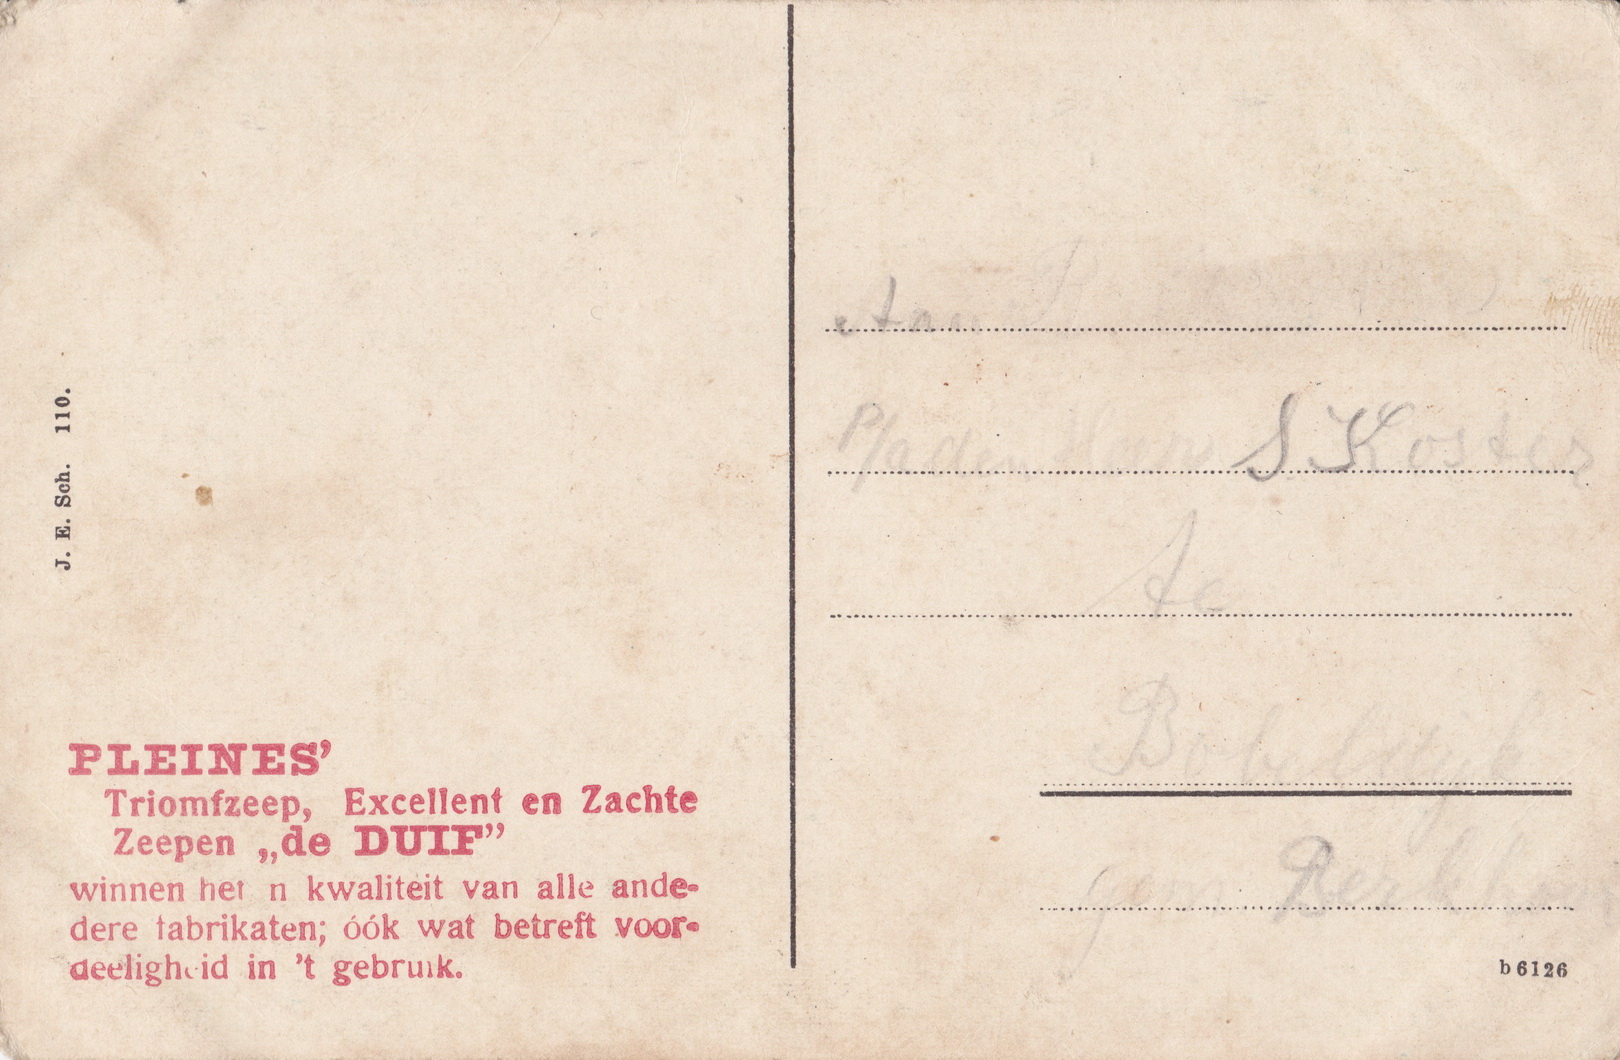 J. E. Sch. 110.
PLEINES’
Triomfzeep, Excellent en Zachte
Zeepen „de DUIF”
winnen het n kwaliteit van alle ande-
dere fabrikaten; óók wat betreft voor-
deeligheid in ’t gebruik.
P/a den Heer S Koster
Te
Bobeldijk
gem Berkhout
b 6126